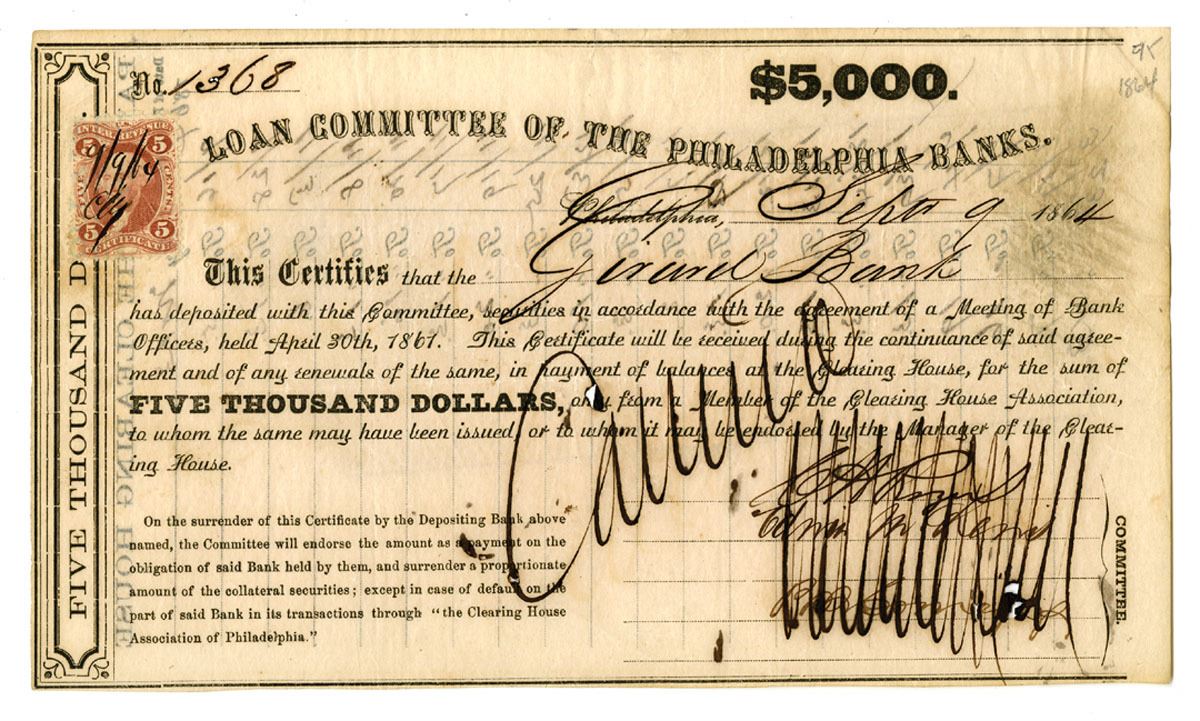 No. 1368
$5,000.
95
1864
INTER. REVENUE
5 5
FIVE CENTS
9/9/64
5 5
CERTIFICATE
LOAN COMMITTEE OF THE PHILADELPHIA BANKS.
Philadelphia, Sept 9 1864
This Certifies that the Girard Bank
has deposited with this Committee, securities in accordance with the agreement of a Meeting of Bank
Officers, held April 30th, 1861. This Certificate will be received during the continuance of said agree-
ment and of any renewals of the same, in payment of balances at the Clearing House, for the sum of
FIVE THOUSAND DOLLARS, only from a Member of the Clearing House Association,
to whom the same may have been issued, or to whom it may be endorsed by the Manager of the Clear-
ing House.
On the surrender of this Certificate by the Depositing Bank above
named, the Committee will endorse the amount as a payment on the
obligation of said Bank held by them, and surrender a proportionate
amount of the collateral securities; except in case of default on the
part of said Bank in its transactions through "the Clearing House
Association of Philadelphia."
COMMITTEE.
FIVE THOUSAND D